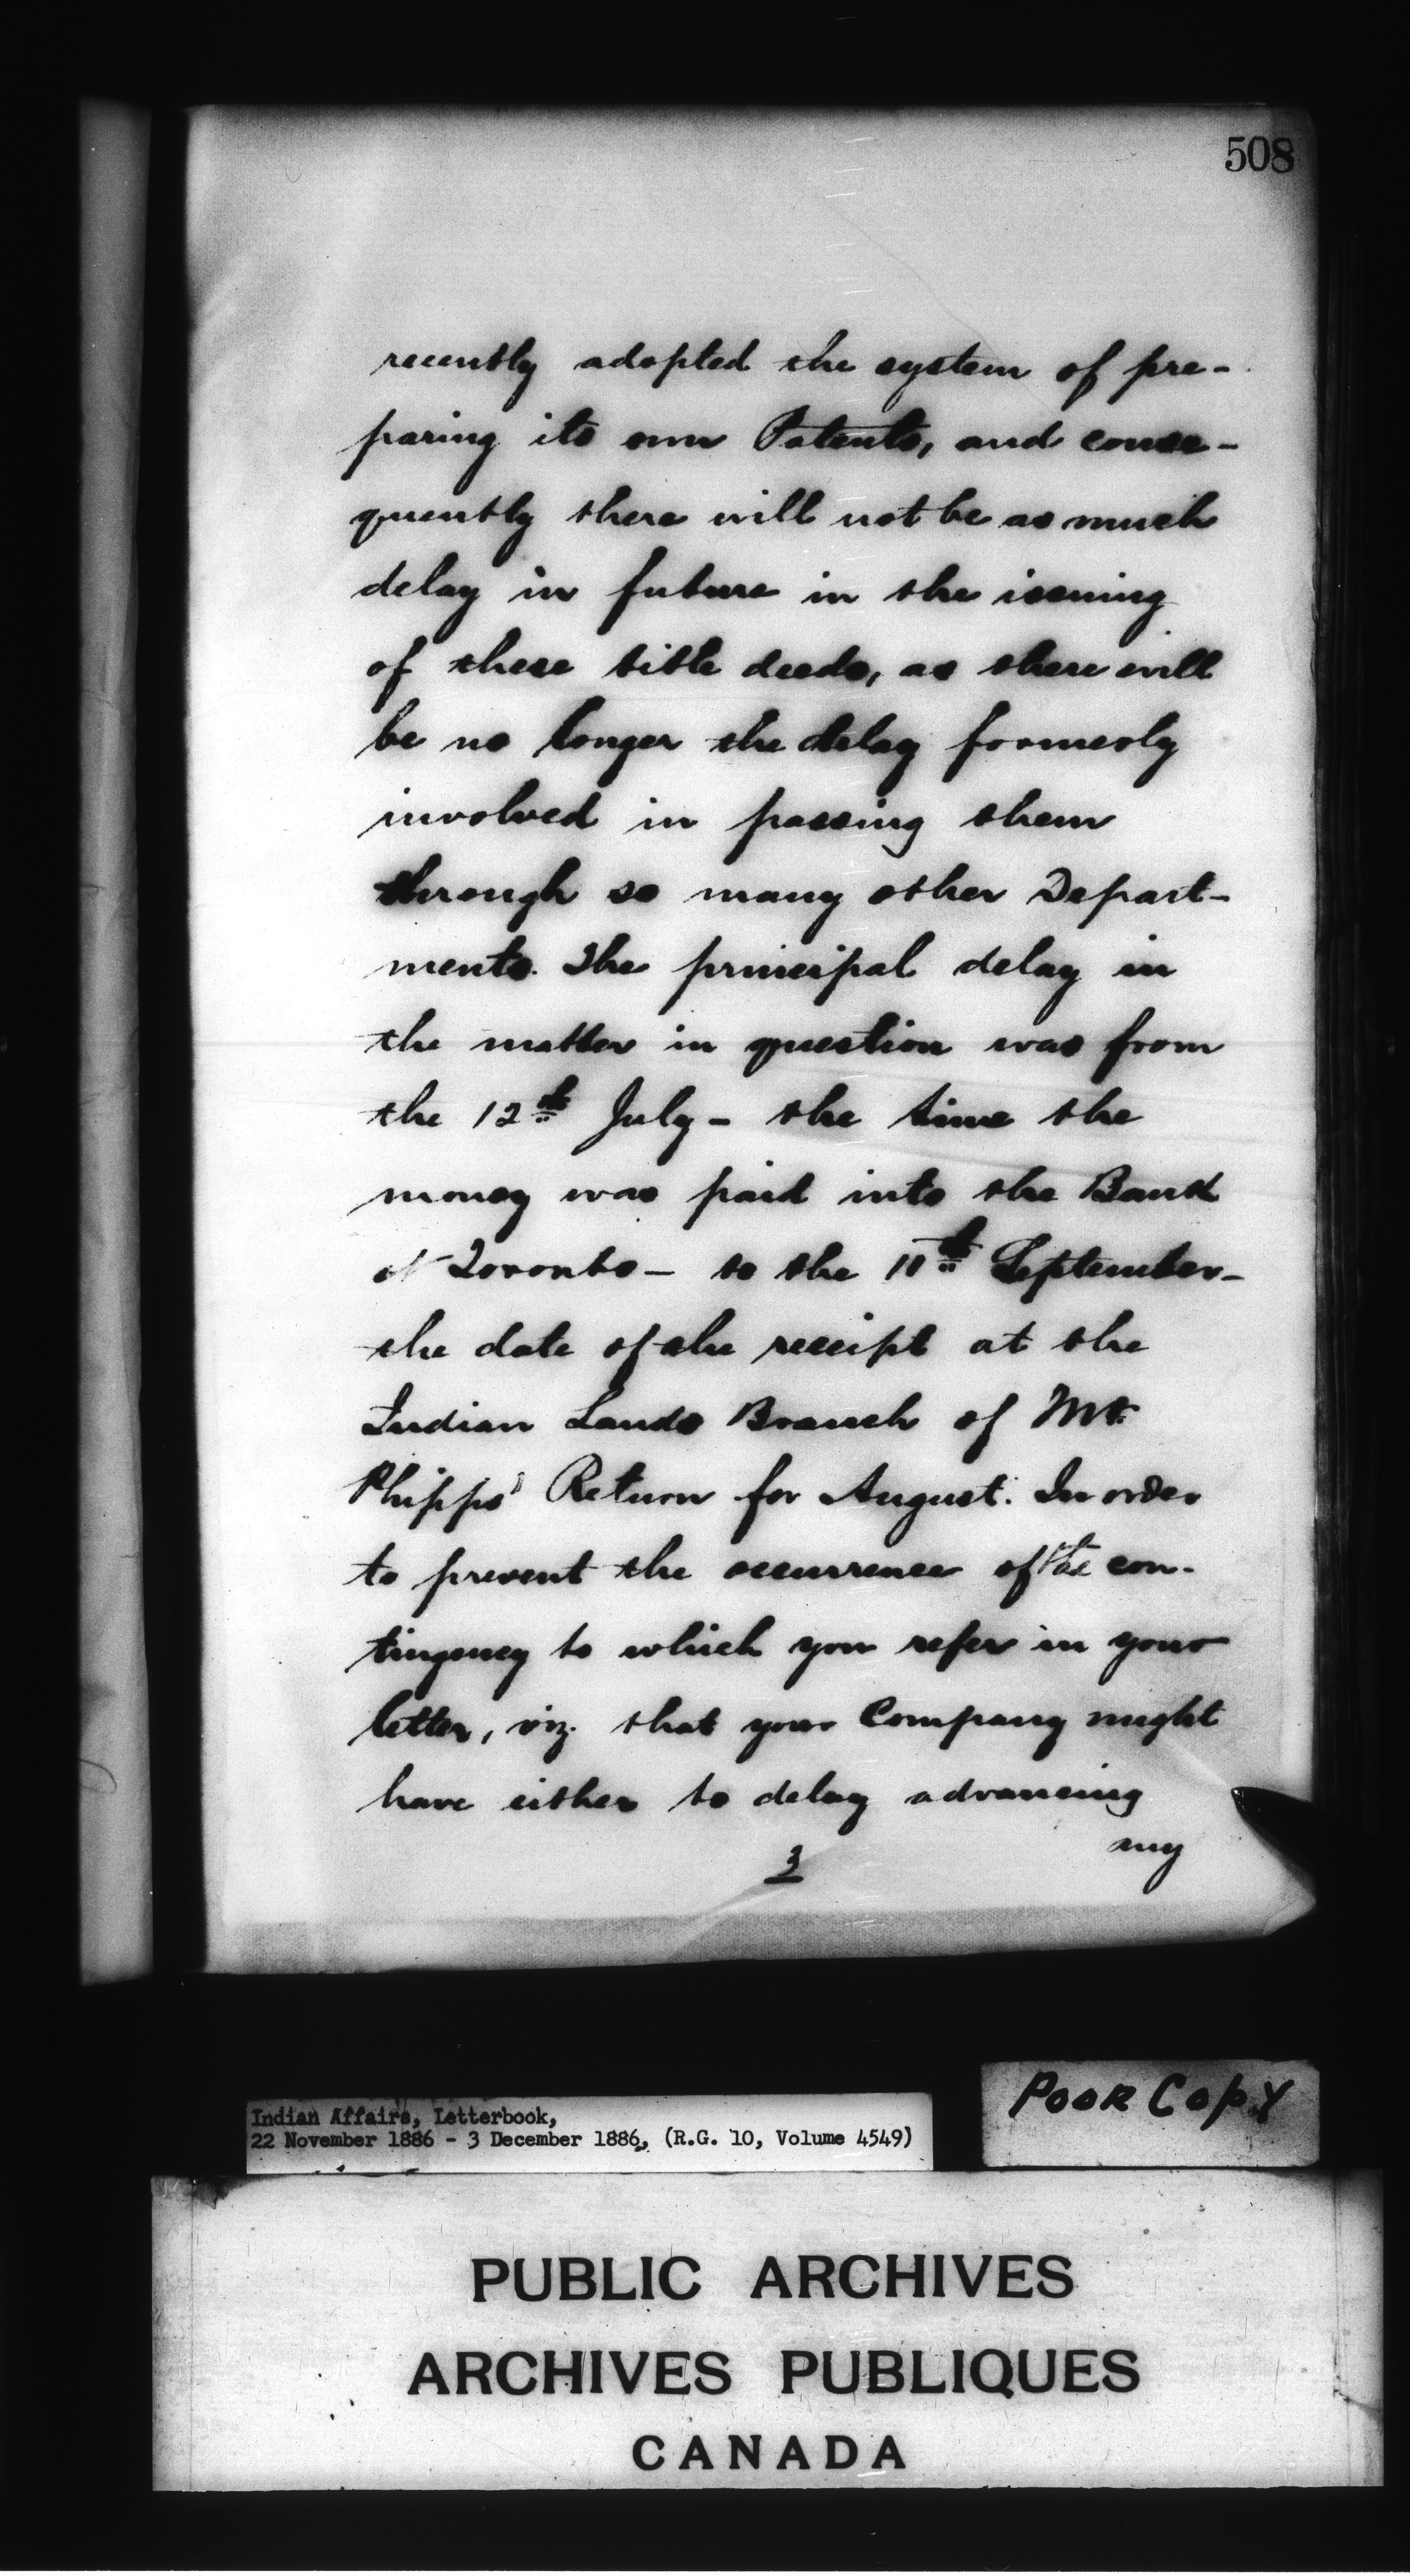 508
recently adopted the system of pre-
paring its own Patents, and conse-
quently there will not be as much
delay in future in the issuing
of these title deeds, as there will
be no longer the delay formerly
involved in passing them
through so many other Depart-
ments. The principal delay in
the matter in question was from
the 12th July - the time the
money was paid into the Bank
at Toronto - to the 11th September -
the date of the receipt at the
Indian Lands Branch of Mr.
Phipps' Return for August. In order
to prevent the occurrence of the con-
tingency to which you refer in your
letter, viz. that your Company might
have either to delay advancing
3
Indian Affairs, Letterbook,
22 November 1886 - 3 December 1886, (R.G. 10, Volume 4549)
POOR COPY
PUBLIC ARCHIVES
ARCHIVES PUBLIQUES
CANADA